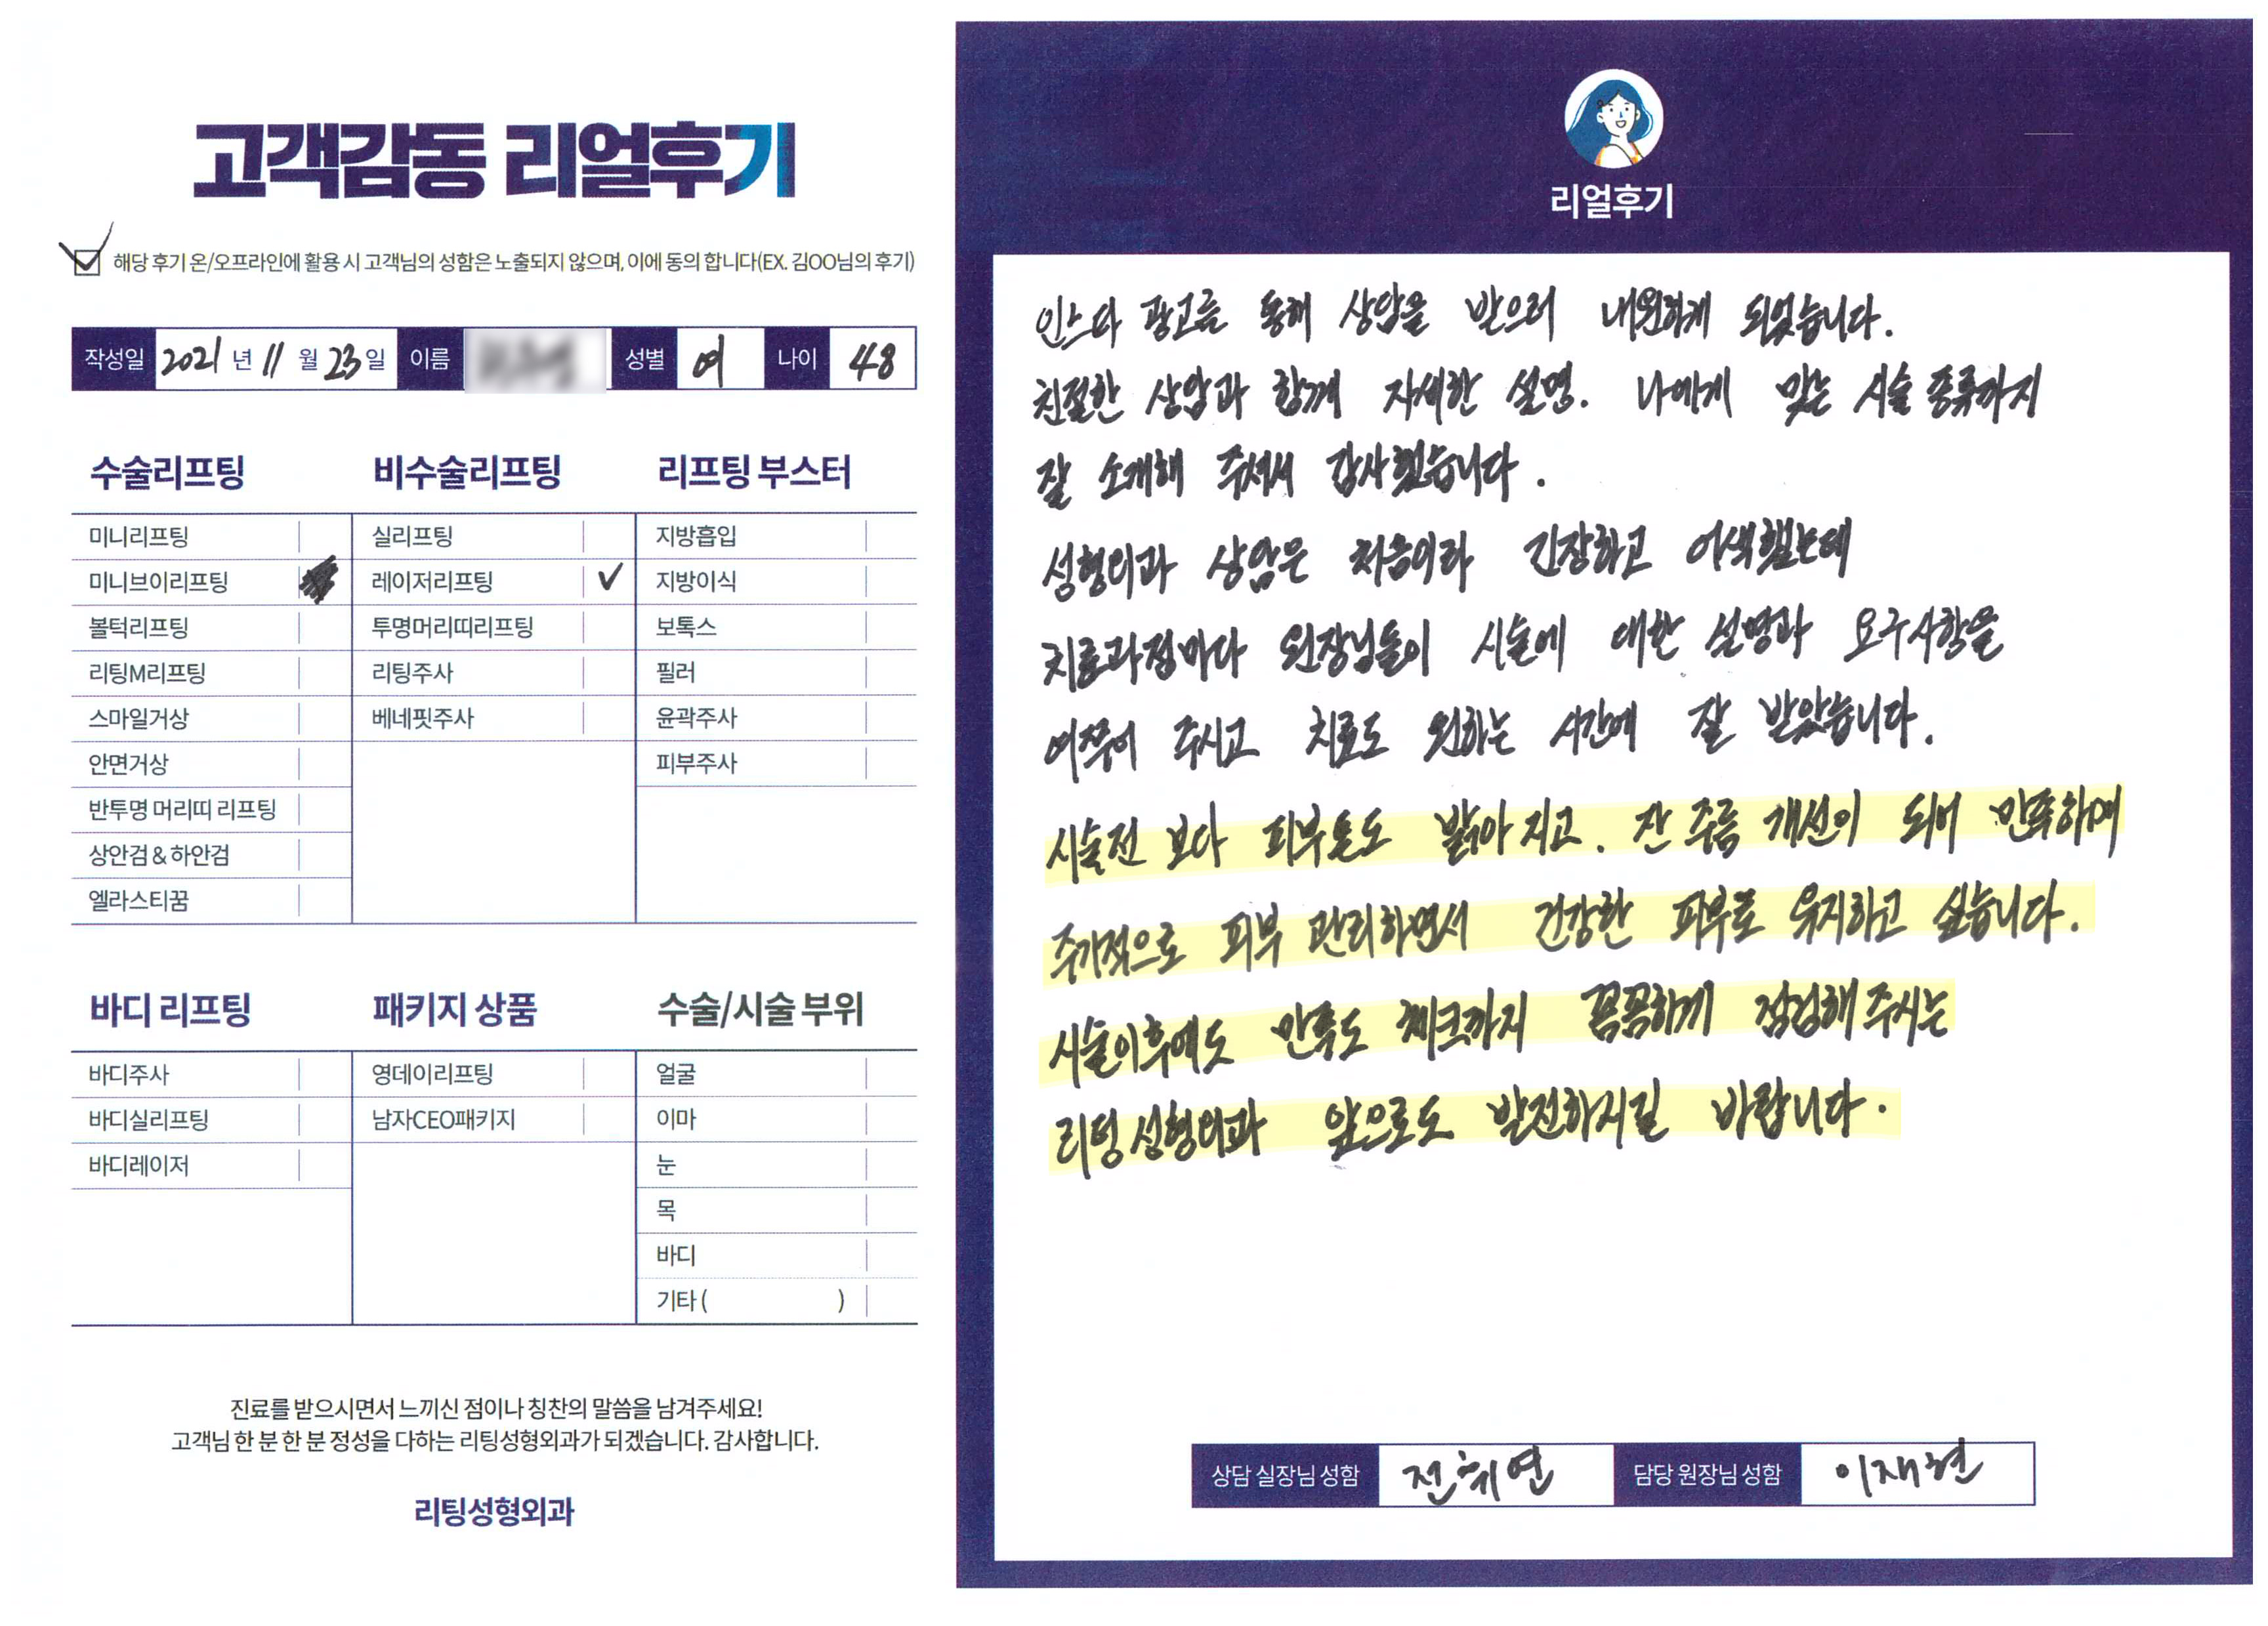 고객감동 리얼후기
해당 후기 온/오프라인에 활용 시 고객님의 성함은 노출되지 않으며, 이에 동의 합니다(EX. 김OO님의 후기)
작성일 2021 년 11 월 23 일 이름 성별 여 나이 48
수술리프팅
미니리프팅
미니브이리프팅
볼턱리프팅
리팅M리프팅
스마일거상
안면거상
반투명 머리띠 리프팅
상안검 & 하안검
엘라스티꿈
비수술리프팅
실리프팅
레이저리프팅 ✓
투명머리띠리프팅
리팅주사
베네핏주사
리프팅 부스터
지방흡입
지방이식
보톡스
필러
윤곽주사
피부주사
바디 리프팅
바디주사
바디실리프팅
바디레이저
패키지 상품
영데이리프팅
남자CEO패키지
수술/시술 부위
얼굴
이마
눈
목
바디
기타 ( )
진료를 받으시면서 느끼신 점이나 칭찬의 말씀을 남겨주세요!
고객님 한 분 한 분 정성을 다하는 리팅성형외과가 되겠습니다. 감사합니다.
리팅성형외과
리얼후기
인스타 광고를 통해 상담을 받으러 내원하게 되었습니다.
친절한 상담과 함께 자세한 설명. 나에게 맞는 시술 종류까지
잘 소개해 주셔서 감사했습니다.
성형외과 상담은 처음이라 긴장하고 어색했는데
치료과정마다 원장님들이 시술에 대한 설명과 요구사항을
여쭈어 주시고 치료도 원하는 시간에 잘 받았습니다.
시술전 보다 피부톤도 밝아 지고. 잔 주름 개선이 되어 만족하며
주기적으로 피부 관리하면서 건강한 피부로 유지하고 싶습니다.
시술이후에도 만족도 체크까지 꼼꼼하게 점검해 주시는
리팅 성형외과 앞으로도 발전하시길 바랍니다.
상담 실장님 성함 전휘연 담당 원장님 성함 이재현